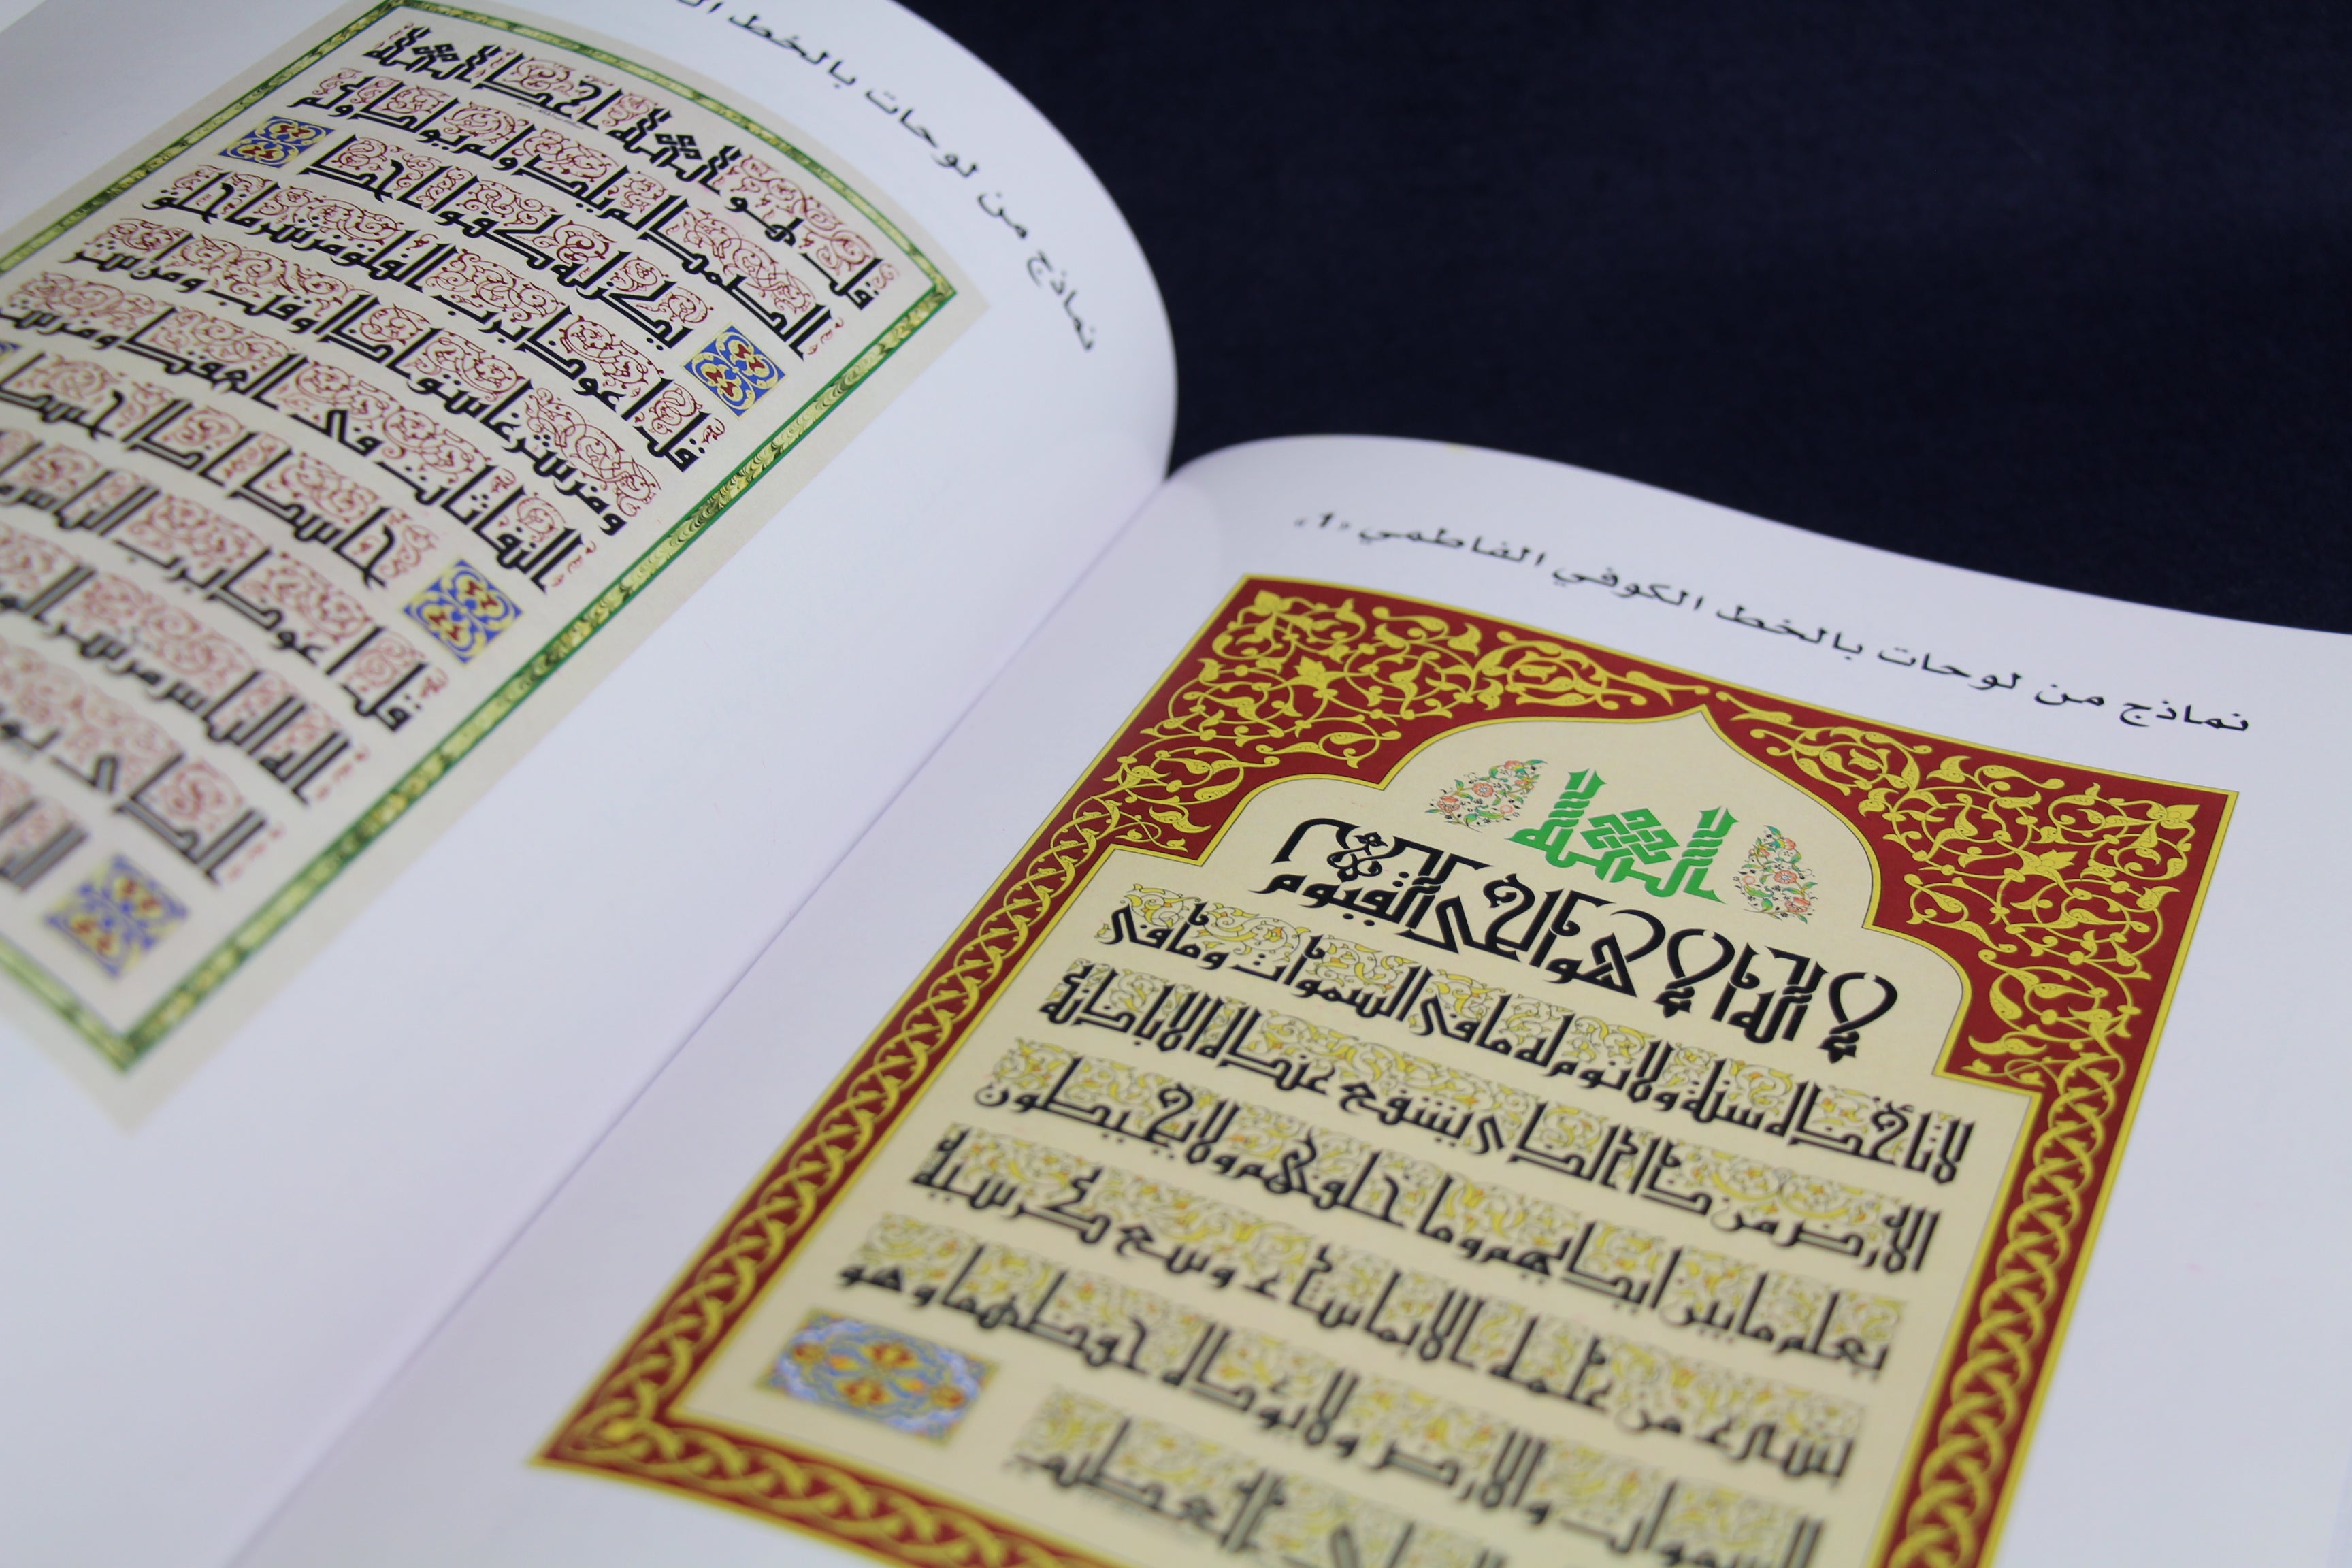 نماذج من لوحات بالخط الكوفي الفاطمي «1»
الله
لا إله إلا هو الحي القيوم
لا تأخذه سنة ولا نوم له ما في السموات وما في
الأرض من ذا الذي يشفع عنده إلا بإذنه
يعلم ما بين أيديهم وما خلفهم ولا يحيطون
بشيء من علمه إلا بما شاء وسع كرسيه
السموات والأرض ولا يئوده حفظهما وهو
العلي العظيم
نماذج من لوحات بالخط
قل هو الله احد الله
الصمد لم يلد ولم يولد ولم
يكن له كفوا احد
قل اعوذ برب الفلق من شر ما خلق
ومن شر غاسق اذا وقب ومن شر
النفاثات في العقد ومن شر
حاسد اذا حسد
قل اعوذ برب الناس
اله الناس من شر
الذي